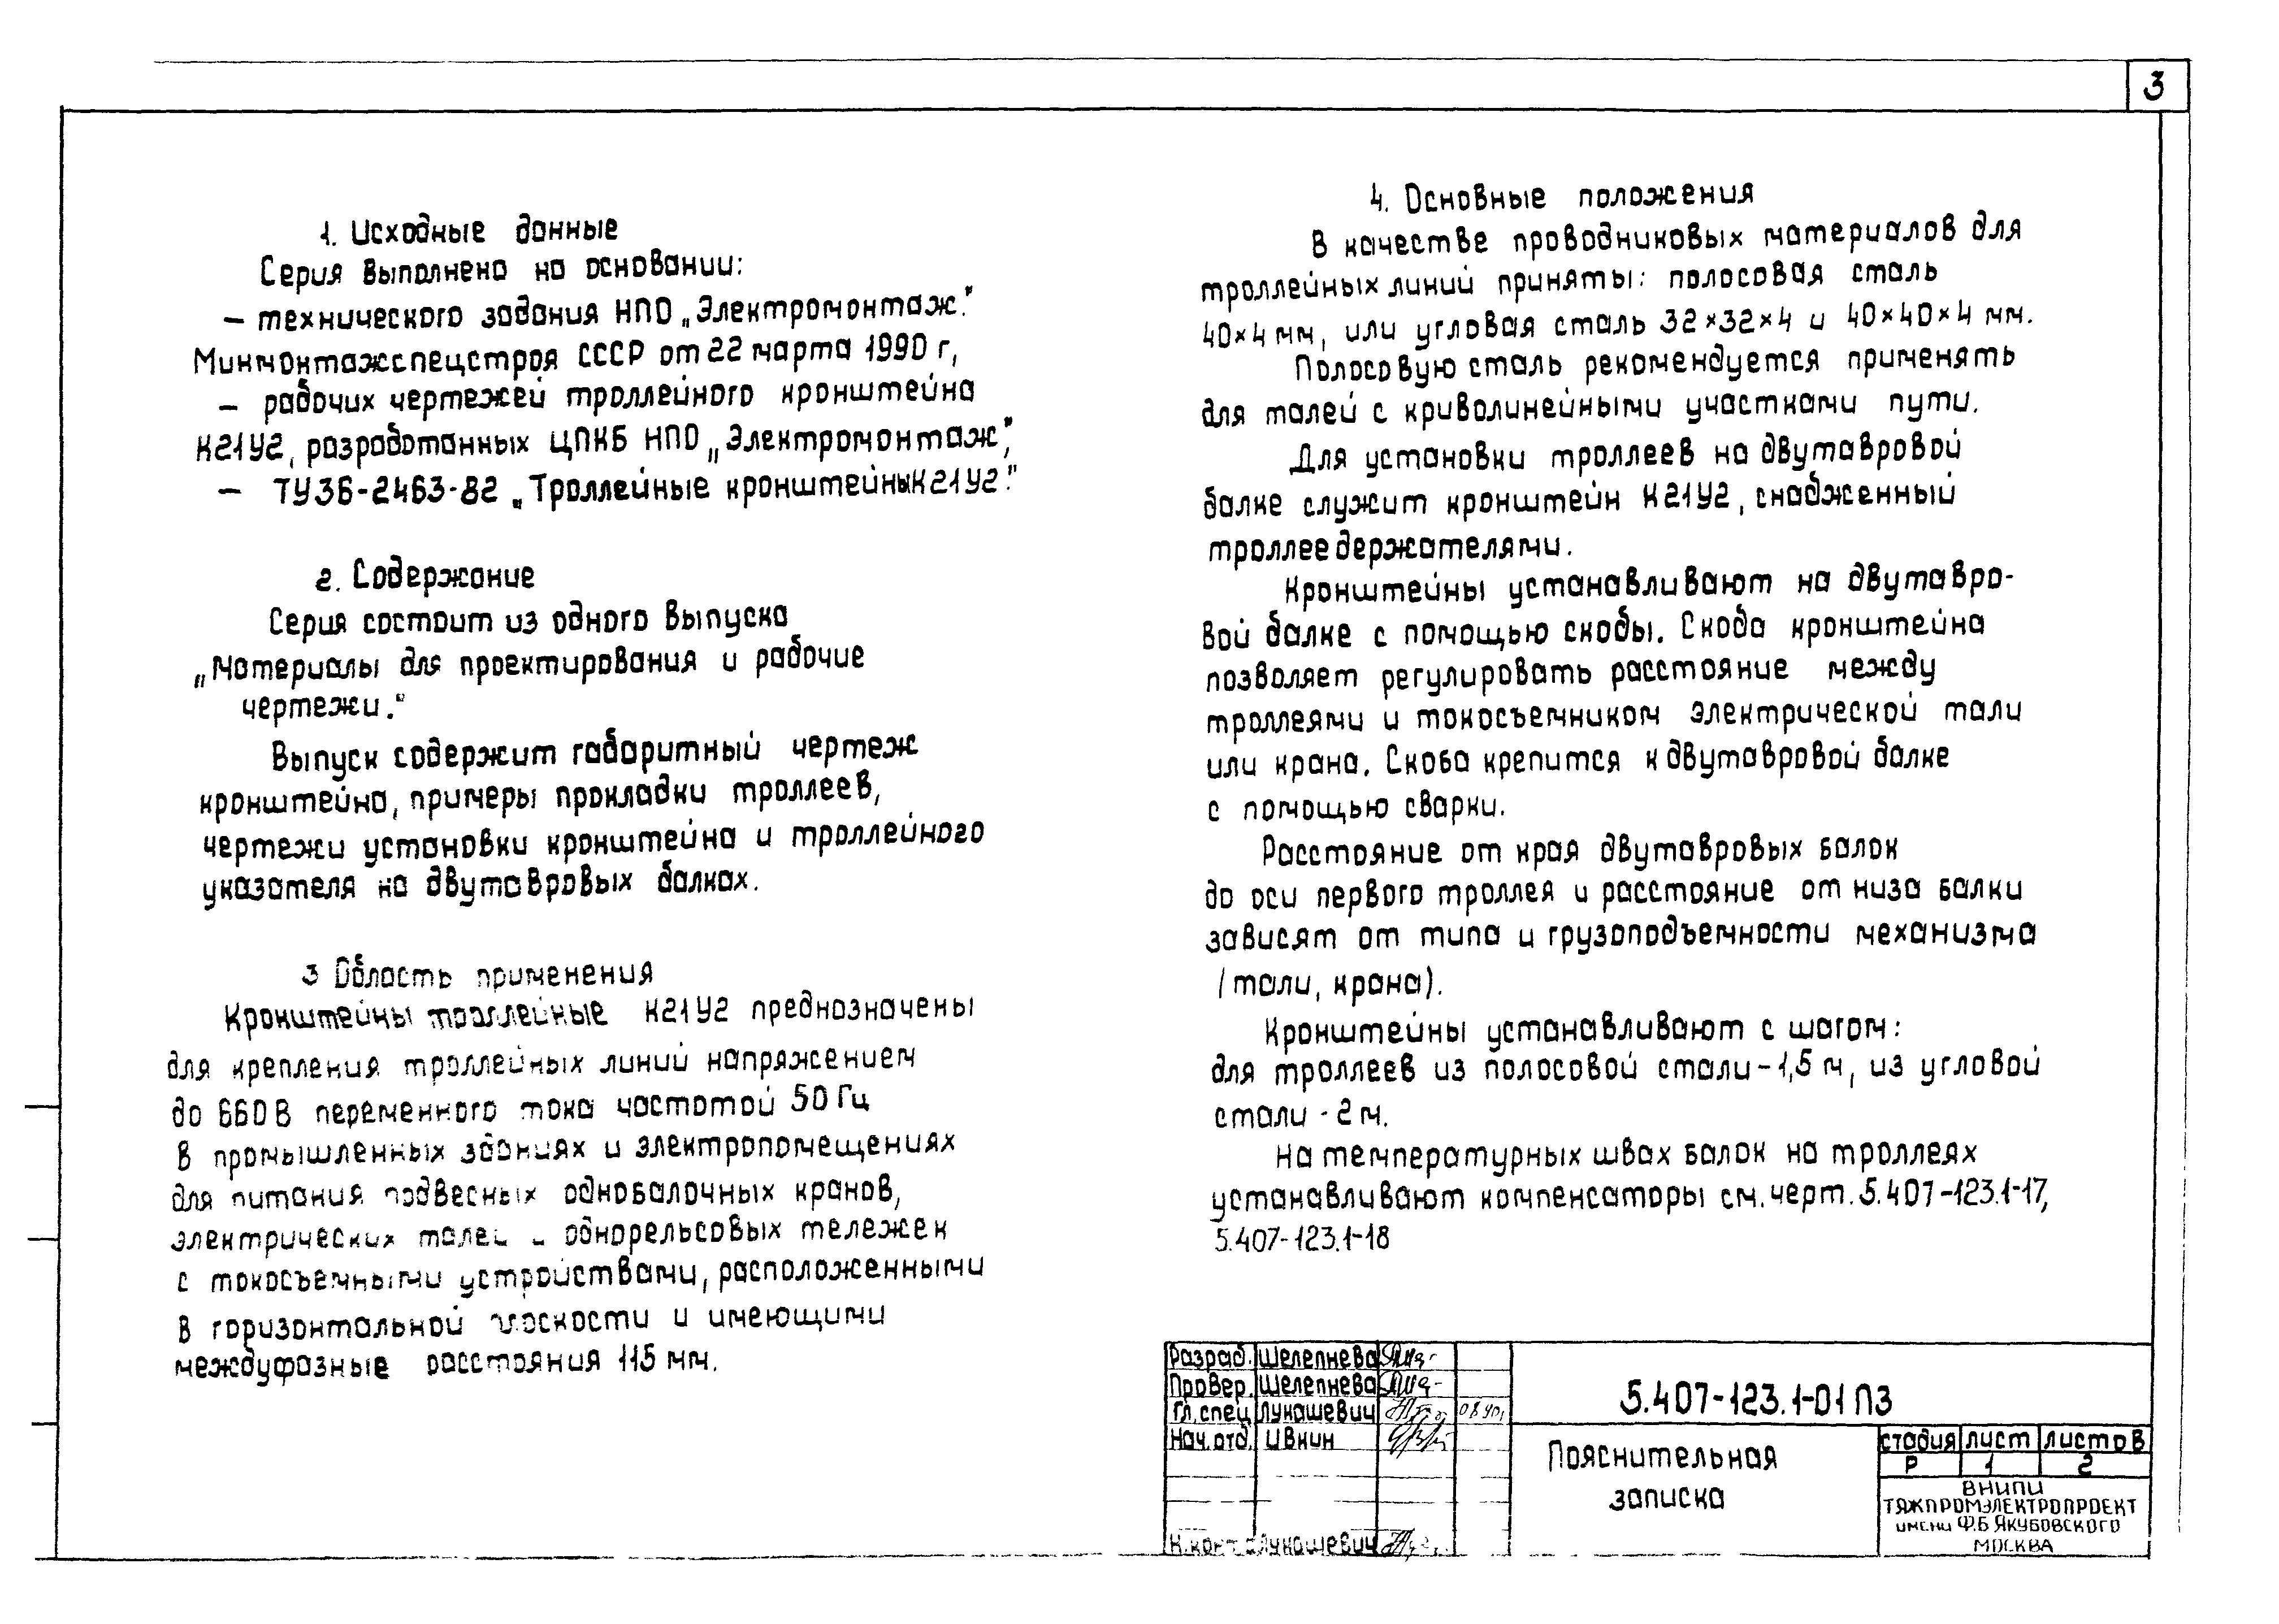 3
1. Исходные данные
Серия выполнена на основании:
— технического задания НПО „Электромонтаж"
Минмонтажспецстроя СССР от 22 марта 1990 г,
— рабочих чертежей троллейного кронштейна
К21У2, разработанных ЦПКБ НПО „Электромонтаж",
— ТУ36-2463-82 „Троллейные кронштейны К21У2".
2. Содержание
Серия состоит из одного выпуска
„Материалы для проектирования и рабочие
чертежи."
Выпуск содержит габаритный чертеж
кронштейна, примеры прокладки троллеев,
чертежи установки кронштейна и троллейного
указателя на двутавровых балках.
3 Область применения
Кронштейны троллейные К21У2 предназначены
для крепления троллейных линий напряжением
до 660В переменного тока частотой 50 Гц
в промышленных зданиях и электропомещениях
для питания подвесных однобалочных кранов,
электрических талей и однорельсовых тележек
с токосъемными устройствами, расположенными
в горизонтальной плоскости и имеющими
междуфазные расстояния 115 мм.
4. Основные положения
В качестве проводниковых материалов для
троллейных линий приняты: полосовая сталь
40×4 мм, или угловая сталь 32×32×4 и 40×40×4 мм.
Полосовую сталь рекомендуется применять
для талей с криволинейными участками пути.
Для установки троллеев на двутавровой
балке служит кронштейн К21У2, снабженный
троллеедержателями.
Кронштейны устанавливают на двутавро-
вой балке с помощью скобы. Скоба кронштейна
позволяет регулировать расстояние между
троллеями и токосъемником электрической тали
или крана. Скоба крепится к двутавровой балке
с помощью сварки.
Расстояние от края двутавровых балок
до оси первого троллея и расстояние от низа балки
зависят от типа и грузоподъемности механизма
(тали, крана).
Кронштейны устанавливают с шагом:
для троллеев из полосовой стали - 1,5 м, из угловой
стали - 2 м.
На температурных швах балок на троллеях
устанавливают компенсаторы см. черт. 5.407-123.1-17,
5.407-123.1-18
Разраб. Шелепнева
Провер. Шелепнева
Гл. спец Лукашевич 08.90г
Нач. отд. Ивкин
Н. конт. Лукашевич
5.407-123.1-01 ПЗ
Пояснительная
записка
стадия лист листов
Р 1 2
ВНИПИ
ТЯЖПРОМЭЛЕКТРОПРОЕКТ
имени Ф.Б Якубовского
МОСКВА